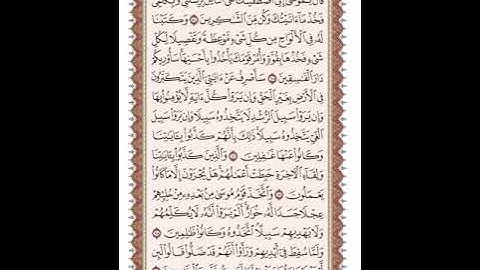 قَالَ يَٰمُوسَىٰٓ إِنِّى ٱصْطَفَيْتُكَ عَلَى ٱلنَّاسِ بِرِسَٰلَٰتِى وَبِكَلَٰمِى
فَخُذْ مَآ ءَاتَيْتُكَ وَكُن مِّنَ ٱلشَّٰكِرِينَ ۝ وَكَتَبْنَا
لَهُۥ فِى ٱلْأَلْوَاحِ مِن كُلِّ شَىْءٍ مَّوْعِظَةً وَتَفْصِيلًا لِّكُلِّ
شَىْءٍ فَخُذْهَا بِقُوَّةٍ وَأْمُرْ قَوْمَكَ يَأْخُذُوا۟ بِأَحْسَنِهَا سَأُو۟رِيكُمْ
دَارَ ٱلْفَٰسِقِينَ ۝ سَأَصْرِفُ عَنْ ءَايَٰتِىَ ٱلَّذِينَ يَتَكَبَّرُونَ
فِى ٱلْأَرْضِ بِغَيْرِ ٱلْحَقِّ وَإِن يَرَوْا۟ كُلَّ ءَايَةٍ لَّا يُؤْمِنُوا۟ بِهَا
وَإِن يَرَوْا۟ سَبِيلَ ٱلرُّشْدِ لَا يَتَّخِذُوهُ سَبِيلًا وَإِن يَرَوْا۟ سَبِيلَ
ٱلْغَىِّ يَتَّخِذُوهُ سَبِيلًا ذَٰلِكَ بِأَنَّهُمْ كَذَّبُوا۟ بِـَٔايَٰتِنَا
وَكَانُوا۟ عَنْهَا غَٰفِلِينَ ۝ وَٱلَّذِينَ كَذَّبُوا۟ بِـَٔايَٰتِنَا
وَلِقَآءِ ٱلْءَاخِرَةِ حَبِطَتْ أَعْمَٰلُهُمْ هَلْ يُجْزَوْنَ إِلَّا مَا كَانُوا۟
يَعْمَلُونَ ۝ وَٱتَّخَذَ قَوْمُ مُوسَىٰ مِنۢ بَعْدِهِۦ مِنْ حُلِيِّهِمْ
عِجْلًا جَسَدًا لَّهُۥ خُوَارٌ أَلَمْ يَرَوْا۟ أَنَّهُۥ لَا يُكَلِّمُهُمْ
وَلَا يَهْدِيهِمْ سَبِيلًا ٱتَّخَذُوهُ وَكَانُوا۟ ظَٰلِمِينَ ۝
وَلَمَّا سُقِطَ فِىٓ أَيْدِيهِمْ وَرَأَوْا۟ أَنَّهُمْ قَدْ ضَلُّوا۟ قَالُوا۟ لَئِن